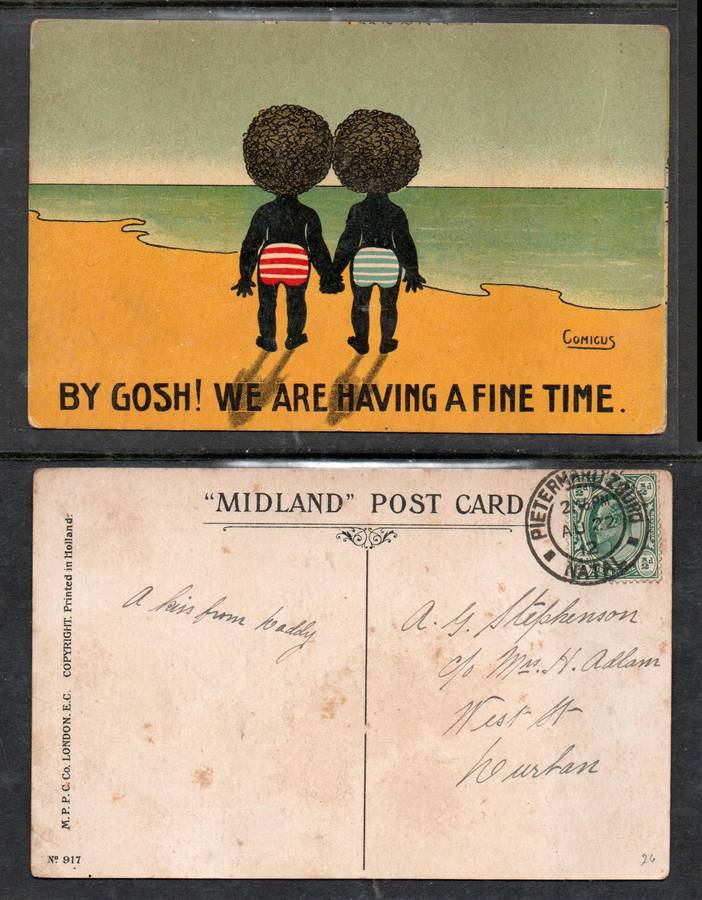 COMICUS
BY GOSH! WE ARE HAVING A FINE TIME.
"MIDLAND" POST CARD
PIETERMARITZBURG
AU 22
12
NATAL
A kiss from Daddy
A. G. Stephenson
c/o Mrs. H. Adlam
West St
Durban
M.P.P.C. Co. LONDON. E.C. COPYRIGHT. Printed in Holland:
Nº 917
26